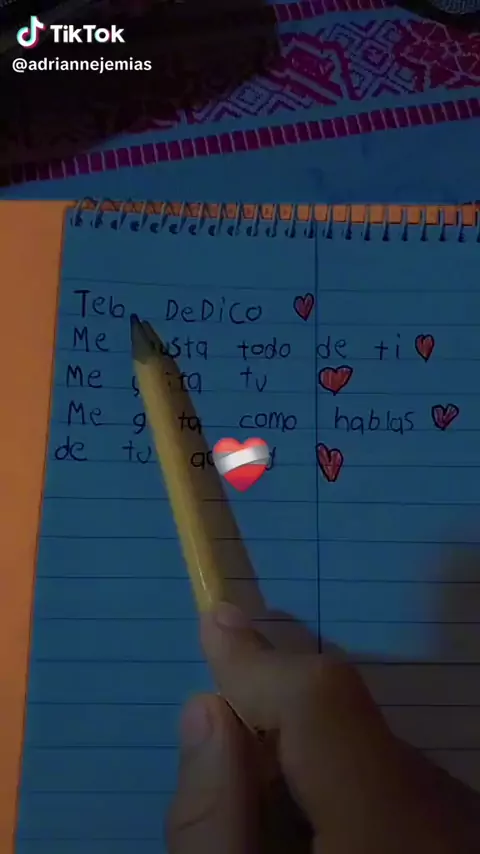 TikTok
@adriannejemias
DeDico
Me todo de ti
Me tu
Me como hablas
de tu